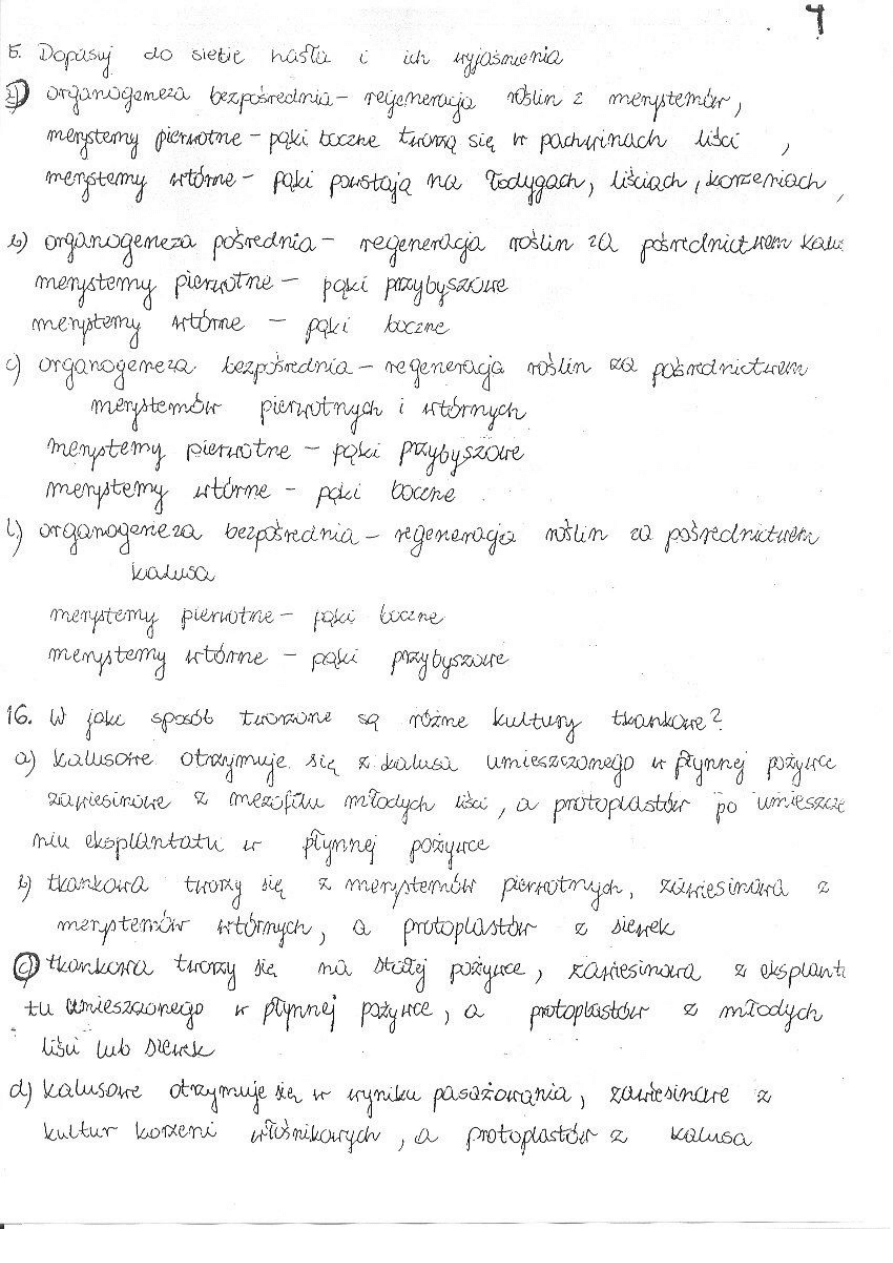 4
5. Dopasuj do siebie hasła i ich wyjaśnienia
a) organogeneza bezpośrednia - regeneracja roślin z merystemów,
merystemy pierwotne - pąki boczne tworzą się w pachwinach liści ,
merystemy wtórne - pąki powstają na łodygach, liściach, korzeniach ,
b) organogeneza pośrednia - regeneracja roślin za pośrednictwem kalu
merystemy pierwotne - pąki przybyszowe
merystemy wtórne - pąki boczne
c) organogeneza bezpośrednia - regeneracja roślin za pośrednictwem
merystemów pierwotnych i wtórnych
merystemy pierwotne - pąki przybyszowe
merystemy wtórne - pąki boczne
) organogeneza bezpośrednia - regeneracja roślin za pośrednictwem
kalusa
merystemy pierwotne - pąki boczne
merystemy wtórne - pąki przybyszowe
16. W jaki sposób tworzone są różne kultury tkankowe?
a) kalusowe otrzymuje się z kalusa umieszczonego w płynnej pożywce
zawiesinowe z mezofilu młodych liści, a protoplastów po umieszcze
niu eksplantatu w płynnej pożywce
b) tkankowa tworzy się z merystemów pierwotnych, zawiesinowa z
merystemów wtórnych, a protoplastów z siewek
c) tkankowa tworzy się na stałej pożywce, zawiesinowa z eksplant
tu umieszczonego w płynnej pożywce, a protoplastów z młodych
liści lub siewek
d) kalusowe otrzymuje się w wyniku pasażowania, zawiesinowe z
kultur korzeni włośnikowych, a protoplastów z kalusa